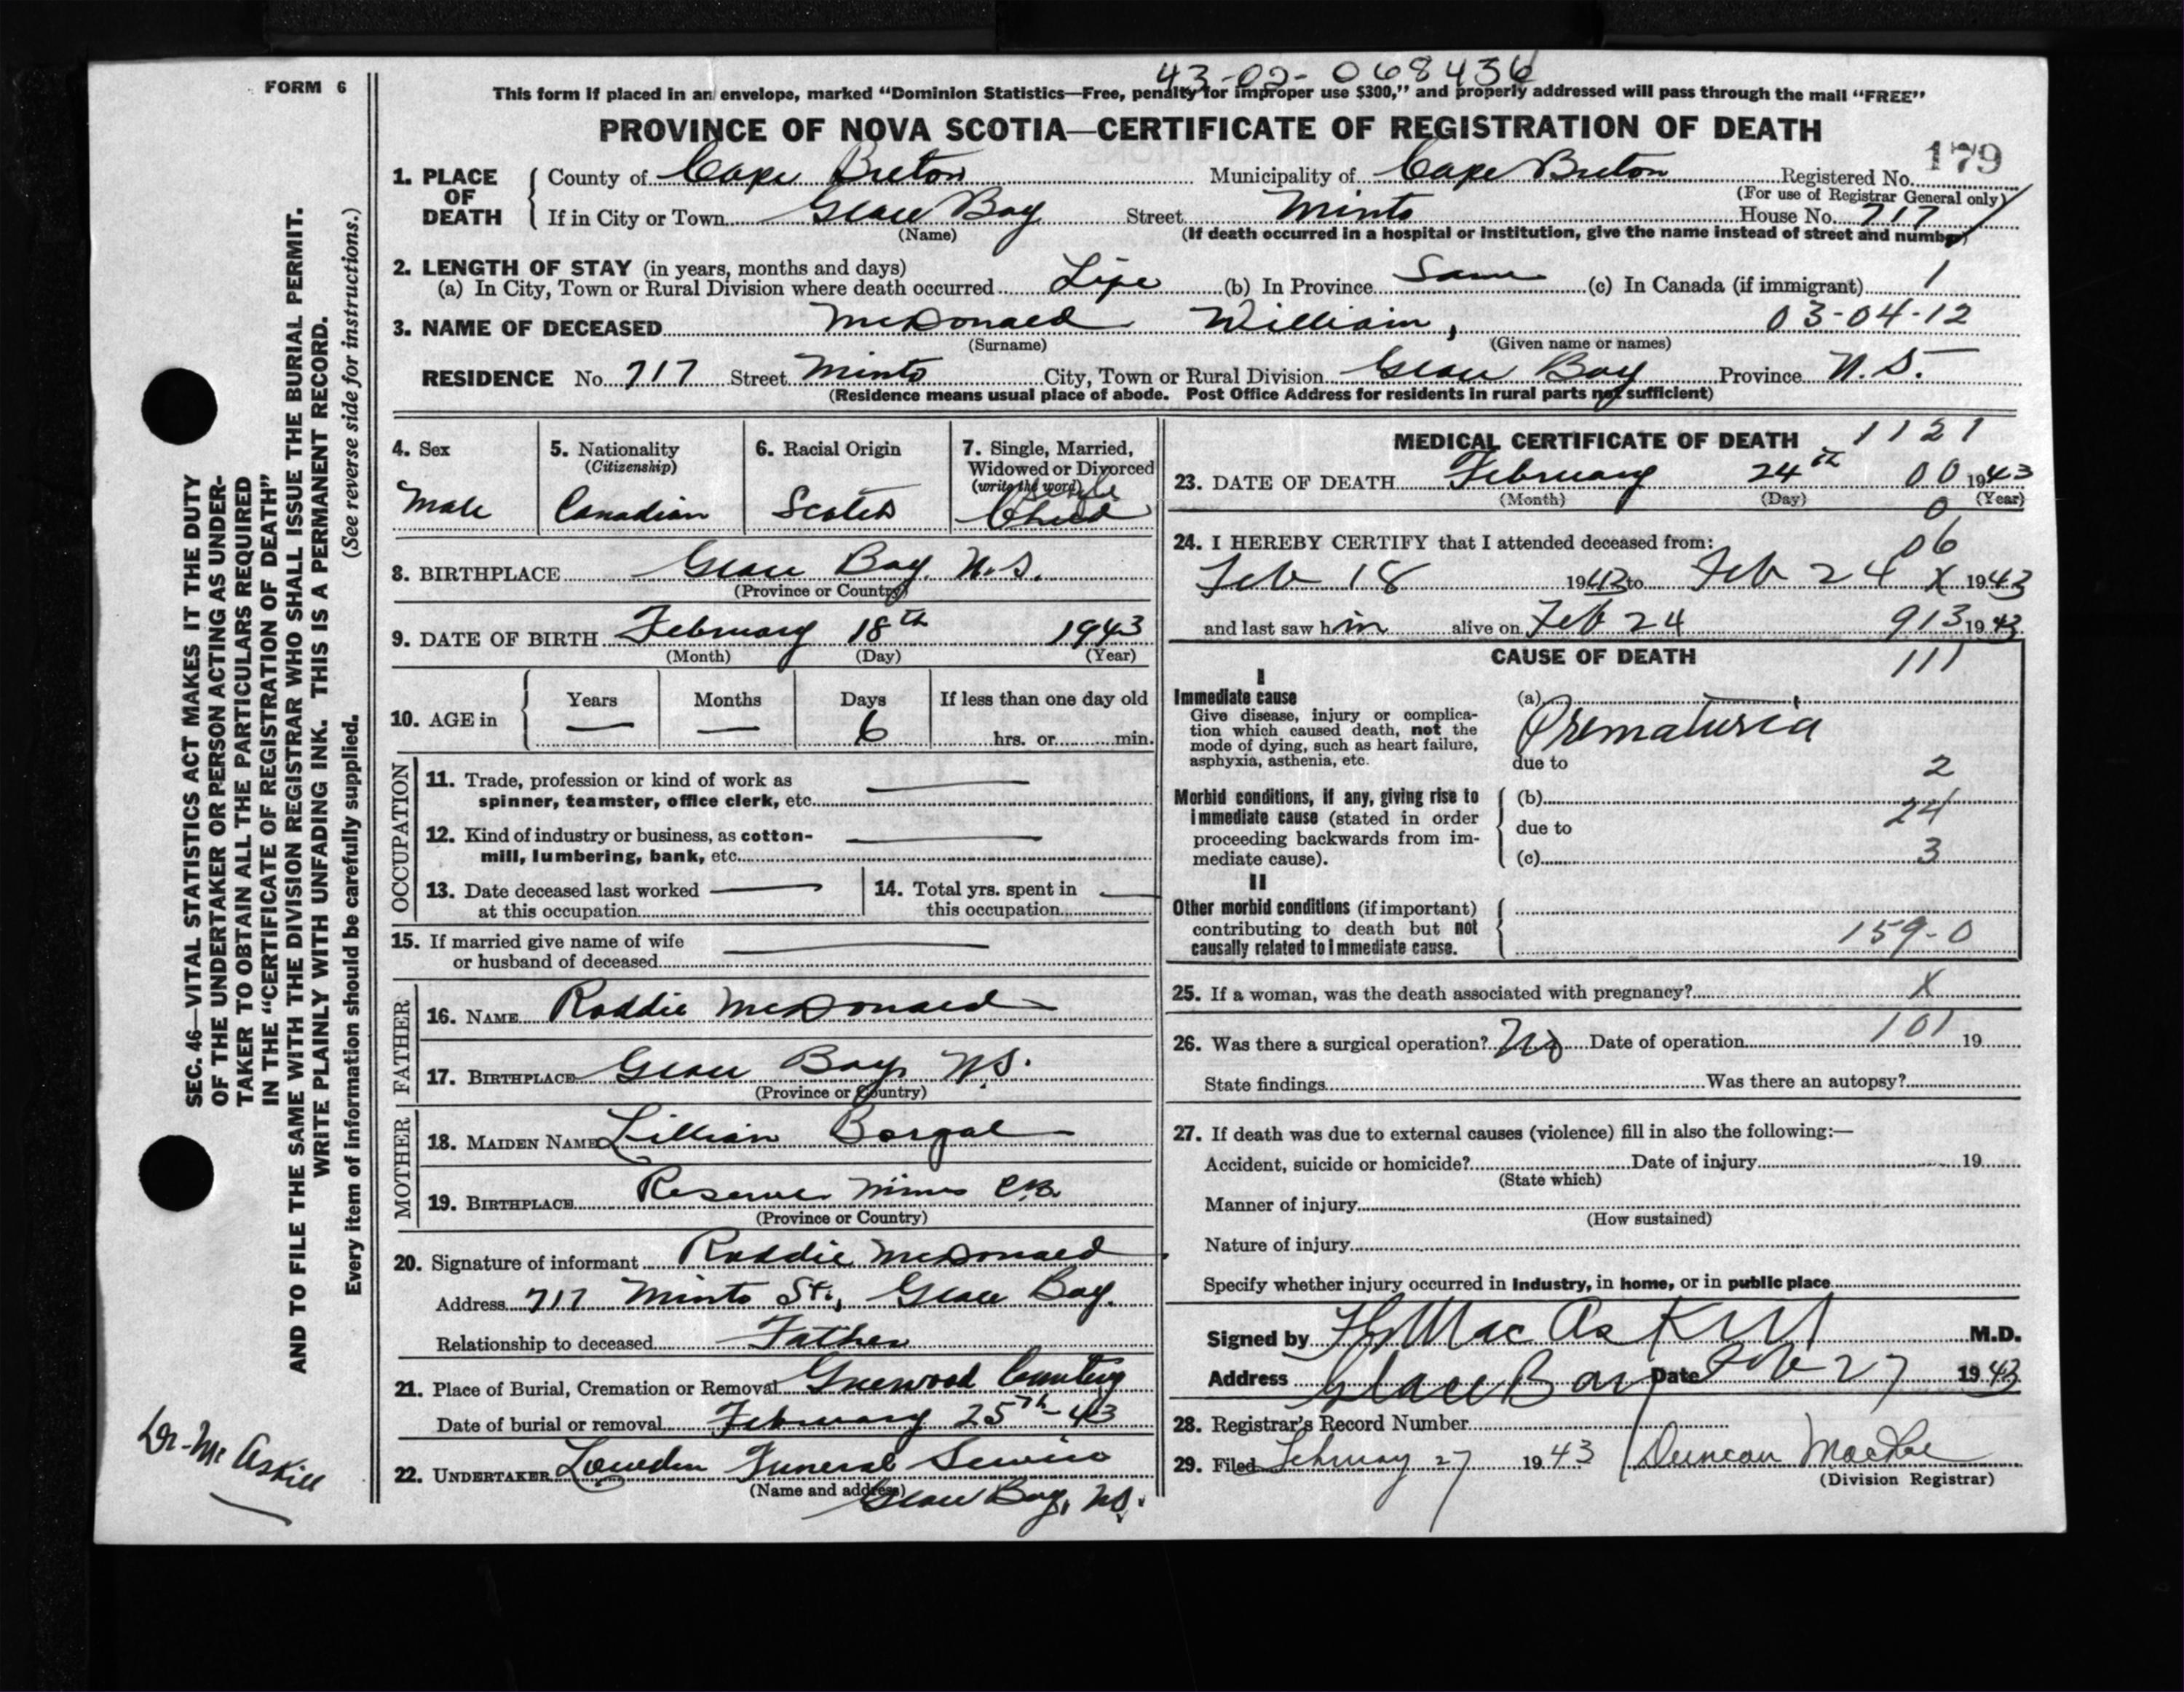 43-02-068436
FORM 6
This form if placed in an envelope, marked "Dominion Statistics—Free, penalty for improper use $300," and properly addressed will pass through the mail "FREE"
PROVINCE OF NOVA SCOTIA—CERTIFICATE OF REGISTRATION OF DEATH
179
1. PLACE OF DEATH
County of Cape Breton Municipality of Cape Breton Registered No.
(For use of Registrar General only)
If in City or Town Glace Bay Street Minto House No. 717
(Name) (If death occurred in a hospital or institution, give the name instead of street and number)
2. LENGTH OF STAY (in years, months and days)
(a) In City, Town or Rural Division where death occurred Life (b) In Province Same (c) In Canada (if immigrant) 1
3. NAME OF DECEASED McDonald William, 03-04-12
(Surname) (Given name or names)
RESIDENCE No. 717 Street Minto City, Town or Rural Division Glace Bay Province N.S.
(Residence means usual place of abode. Post Office Address for residents in rural parts not sufficient)
4. Sex
Male
5. Nationality
(Citizenship)
Canadian
6. Racial Origin
Scotch
7. Single, Married,
Widowed or Divorced
(write the word)
Single
Child
8. BIRTHPLACE Glace Bay. N.S.
(Province or Country)
9. DATE OF BIRTH February 18th 1943
(Month) (Day) (Year)
10. AGE in Years Months Days If less than one day old
— — 6 hrs. or min.
OCCUPATION
11. Trade, profession or kind of work as
spinner, teamster, office clerk, etc.
12. Kind of industry or business, as cotton-
mill, lumbering, bank, etc.
13. Date deceased last worked
at this occupation
14. Total yrs. spent in
this occupation
15. If married give name of wife
or husband of deceased
FATHER
16. NAME Roddie McDonald
17. BIRTHPLACE Glace Bay, N.S.
(Province or Country)
MOTHER
18. MAIDEN NAME Lillian Borgal
19. BIRTHPLACE Reserve Mines C.B.
(Province or Country)
20. Signature of informant Roddie McDonald
Address 717 Minto St., Glace Bay.
Relationship to deceased Father
21. Place of Burial, Cremation or Removal Greenwood Cemetery
Date of burial or removal February 25th-43
22. UNDERTAKER Lowden Funeral Service
(Name and address)
Glace Bay, N.S.
MEDICAL CERTIFICATE OF DEATH 1121
23. DATE OF DEATH February 24th 00 1943
(Month) (Day) (Year)
0
24. I HEREBY CERTIFY that I attended deceased from: 06
Feb 18 1943 to Feb 24 X 1943
and last saw him alive on Feb 24 913 1943
CAUSE OF DEATH 111
I
Immediate cause
Give disease, injury or complica-
tion which caused death, not the
mode of dying, such as heart failure,
asphyxia, asthenia, etc.
(a)
Prematuria
due to
2
Morbid conditions, if any, giving rise to
immediate cause (stated in order
proceeding backwards from im-
mediate cause).
(b)
24
due to
(c) 3
II
Other morbid conditions (if important)
contributing to death but not
causally related to immediate cause.
159-0
25. If a woman, was the death associated with pregnancy? X
26. Was there a surgical operation? No Date of operation 101 19
State findings Was there an autopsy?
27. If death was due to external causes (violence) fill in also the following:—
Accident, suicide or homicide? Date of injury 19
(State which)
Manner of injury
(How sustained)
Nature of injury
Specify whether injury occurred in industry, in home, or in public place
Signed by MacAskill M.D.
Address Glace Bay Date Feb 27 1943
28. Registrar's Record Number
29. Filed February 27 1943 Duncan
(Division Registrar)
SEC. 46—VITAL STATISTICS ACT MAKES IT THE DUTY
OF THE UNDERTAKER OR PERSON ACTING AS UNDER-
TAKER TO OBTAIN ALL THE PARTICULARS REQUIRED
IN THE "CERTIFICATE OF REGISTRATION OF DEATH"
AND TO FILE THE SAME WITH THE DIVISION REGISTRAR WHO SHALL ISSUE THE BURIAL PERMIT.
WRITE PLAINLY WITH UNFADING INK. THIS IS A PERMANENT RECORD.
Every item of information should be carefully supplied. (See reverse side for instructions.)
Dr. McAskill